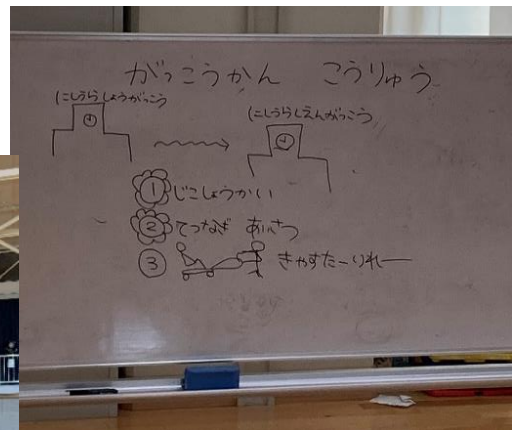 がっこうかん こうりゅう
にしうらしょうがっこう
にしうらしえんがっこう
① じこしょうかい
② てつなぎ あいさつ
③ きゃすたーりれー